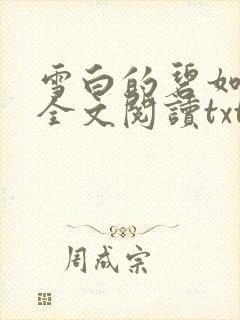 雪白的碧如
全文閱讀txt
周成宗